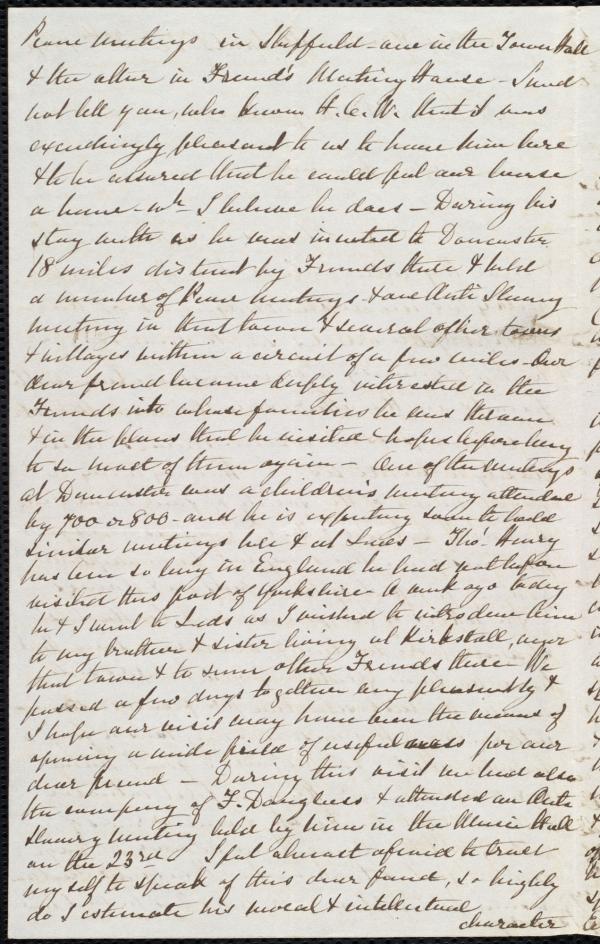 Peace meetings in Sheffield - one in the Town Hall
& the other in Friends Meeting House - I need
not tell you, who know H. C. W. that it was
exceedingly pleasant to us to have him here
& to be assured that he could feel our house
a home - wh. I believe he does - During his
stay with us he was invited to Doncaster
18 miles distant by Friends there & held
a number of Peace meetings & one Anti Slavery
meeting in that town & several other towns
& villages within a circuit of a few miles - Our
dear friend became deeply interested in the
Friends into whose families he was thrown
& in the places that he visited & hopes before long
to see most of them again - One of the meetings
at Doncaster was a children's meeting attended
by 700 or 800 - and he is expecting soon to hold
similar meetings here & at Leeds - Tho' Henry
has been so long in England he had not before
visited this part of Yorkshire A week ago today
he & I went to Leeds as I wished to introduce him
to my brother & sister living at Kirkstall, near
that town & to some other Friends there We
passed a few days together very pleasantly &
I hope our visit may have been the means of
opening a wide field of usefulness for our
dear friend - During this visit we had also
the company of F. Douglass & attended an Anti
Slavery meeting held by him in the Music Hall
on the 23rd I feel almost afraid to trust
myself to speak of this dear friend, so highly
do I estimate his moral & intellectual
character